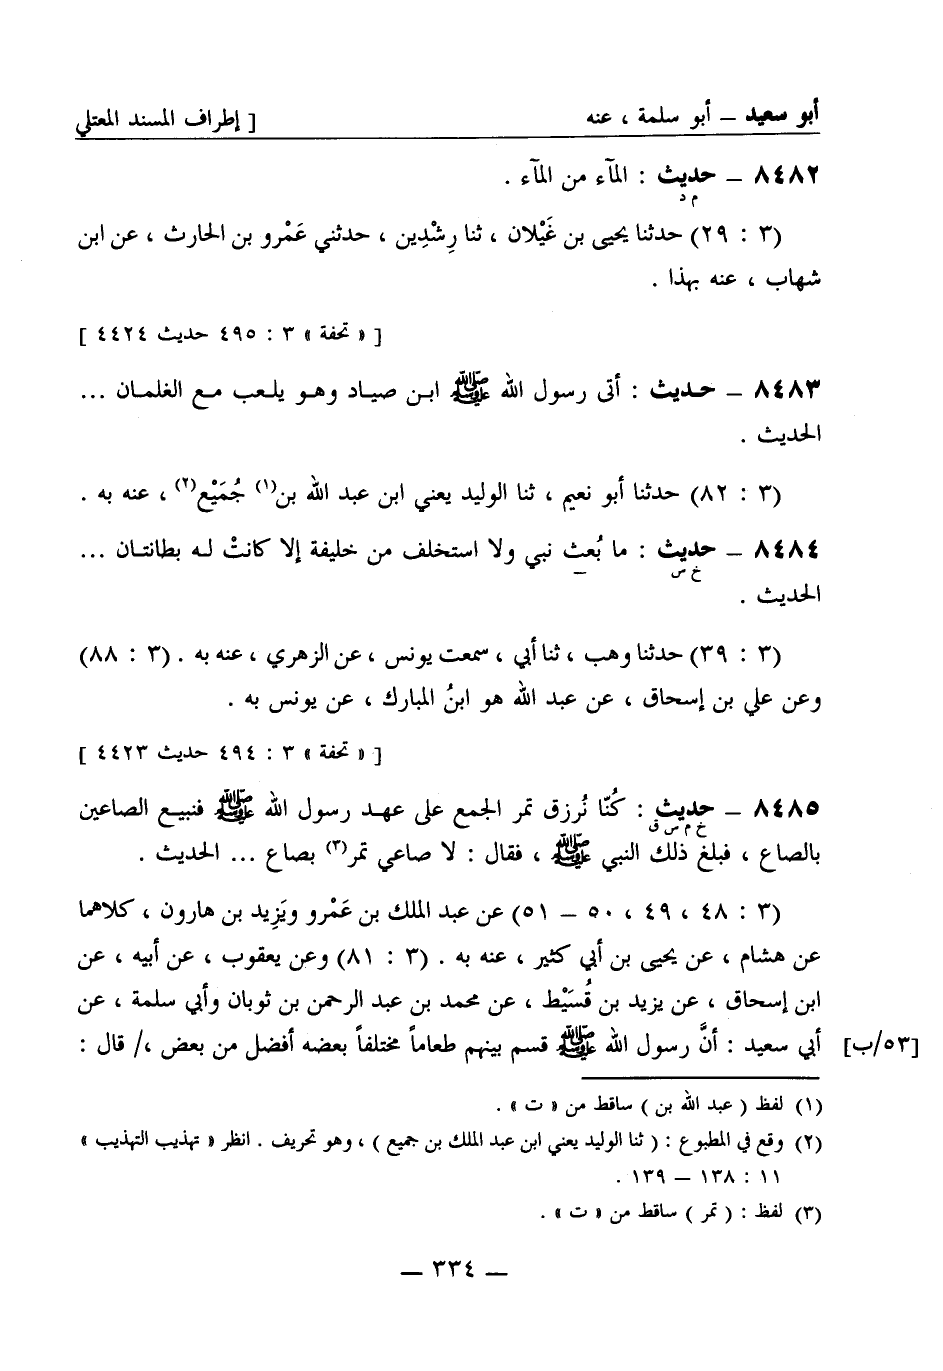 أبو سعيد – أبو سلمة ، عنه [ إطراف المسند المعتلي
٨٤٨٢ – حديث : المآء من المآء .
م د
(٣ : ٢٩) حدثنا يحيى بن غَيْلان ، ثنا رِشْدِين ، حدثني عَمْرو بن الحارث ، عن ابن
شهاب ، عنه بهذا .
[ « تحفة » ٣ : ٤٩٥ حديث ٤٤٢٤ ]
٨٤٨٣ – حديث : أتى رسول الله ﷺ ابن صياد وهو يلعب مع الغلمان ...
الحديث .
(٣ : ٨٢) حدثنا أبو نعيم ، ثنا الوليد يعني ابن عبد الله بن(١) جُمَيْع(٢) ، عنه به .
٨٤٨٤ – حديث : ما بُعث نبي ولا استخلف من خليفة إلا كانتْ له بطانتان ...
خ س
الحديث .
(٣ : ٣٩) حدثنا وهب ، ثنا أبي ، سمعت يونس ، عن الزهري ، عنه به . (٣ : ٨٨)
وعن علي بن إسحاق ، عن عبد الله هو ابنُ المبارك ، عن يونس به .
[ « تحفة » ٣ : ٤٩٤ حديث ٤٤٢٣ ]
٨٤٨٥ – حديث : كُنّا نُرزق تمر الجمع على عهد رسول الله ﷺ فنبيع الصاعين
خ م س ق
بالصاع ، فبلغ ذلك النبي ﷺ ، فقال : لا صاعي تمر(٣) بصاع ... الحديث .
(٣ : ٤٨ ، ٤٩ ، ٥٠ – ٥١) عن عبد الملك بن عَمْرو ويَزِيد بن هارون ، كلاهما
عن هشام ، عن يحيى بن أبي كثير ، عنه به . (٣ : ٨١) وعن يعقوب ، عن أبيه ، عن
ابن إسحاق ، عن يزيد بن قُسَيْط ، عن محمد بن عبد الرحمن بن ثوبان وأبي سلمة ، عن
[٥٣/ب] أبي سعيد : أنَّ رسول الله ﷺ قسم بينهم طعاماً مختلفاً بعضه أفضل من بعض ،/ قال :
(١) لفظ ( عبد الله بن ) ساقط من « ت » .
(٢) وقع في المطبوع : ( ثنا الوليد يعني ابن عبد الملك بن جميع ) ، وهو تحريف . انظر « تهذيب التهذيب »
١١ : ١٣٨ – ١٣٩ .
(٣) لفظ : ( تمر ) ساقط من « ت » .
– ٣٣٤ –